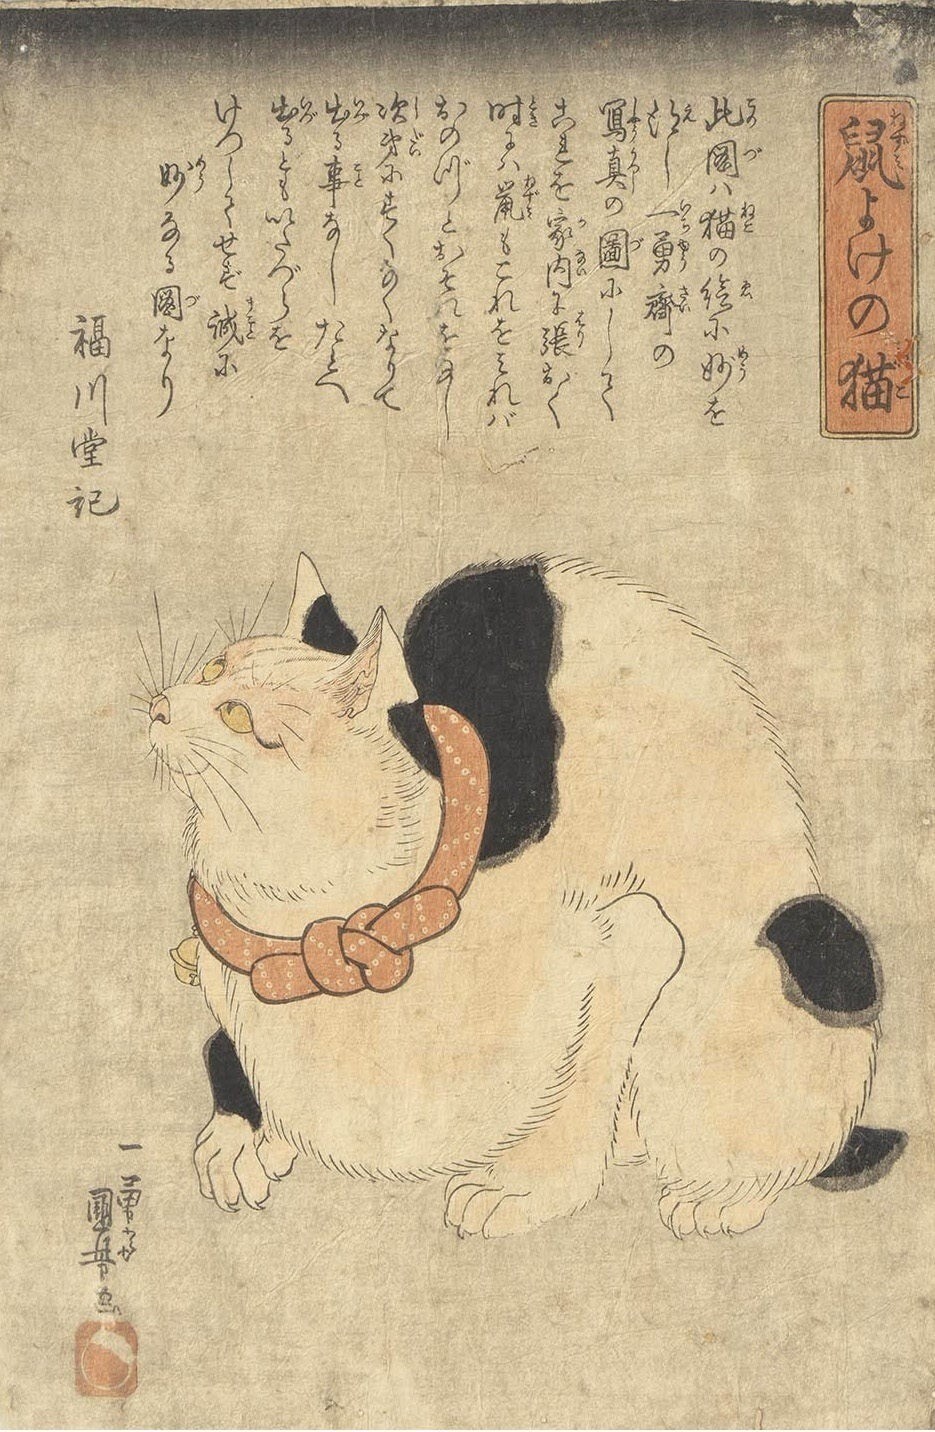 鼠よけの猫
此圖ハ猫の絵に妙を
得し一勇齋の
寫真の圖にして
これを家内に張おく
時にハ鼠もこれをみれバ
おのづとおそれをなし
次第にすくなくなりて
出る事なしたとへ
出るともいたづらを
けつしてせず誠に
妙なる圖なり
福川堂記
一勇齋
國芳画